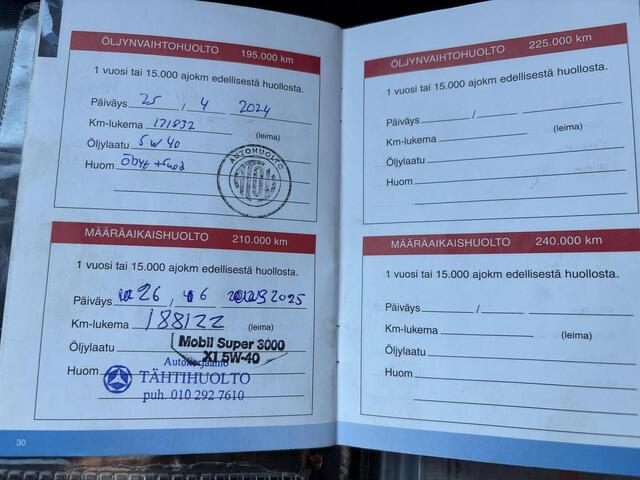 ÖLJYNVAIHTOHUOLTO 195.000 km
1 vuosi tai 15.000 ajokm edellisestä huollosta.
Päiväys 25 , 4 2024
Km-lukema 171832 (leima)
Öljylaatu 5W40
Huom
AUTOHUOLTO
MÄÄRÄAIKAISHUOLTO 210.000 km
1 vuosi tai 15.000 ajokm edellisestä huollosta.
Päiväys 26 , 6 2025
Km-lukema 188122 (leima)
Öljylaatu Mobil Super 3000
X1 5W-40
Autokorjaamo
Huom TÄHTIHUOLTO
puh. 010 292 7610
30
ÖLJYNVAIHTOHUOLTO 225.000 km
1 vuosi tai 15.000 ajokm edellisestä huollosta.
Päiväys /
Km-lukema (leima)
Öljylaatu
Huom
MÄÄRÄAIKAISHUOLTO 240.000 km
1 vuosi tai 15.000 ajokm edellisestä huollosta.
Päiväys /
Km-lukema (leima)
Öljylaatu
Huom